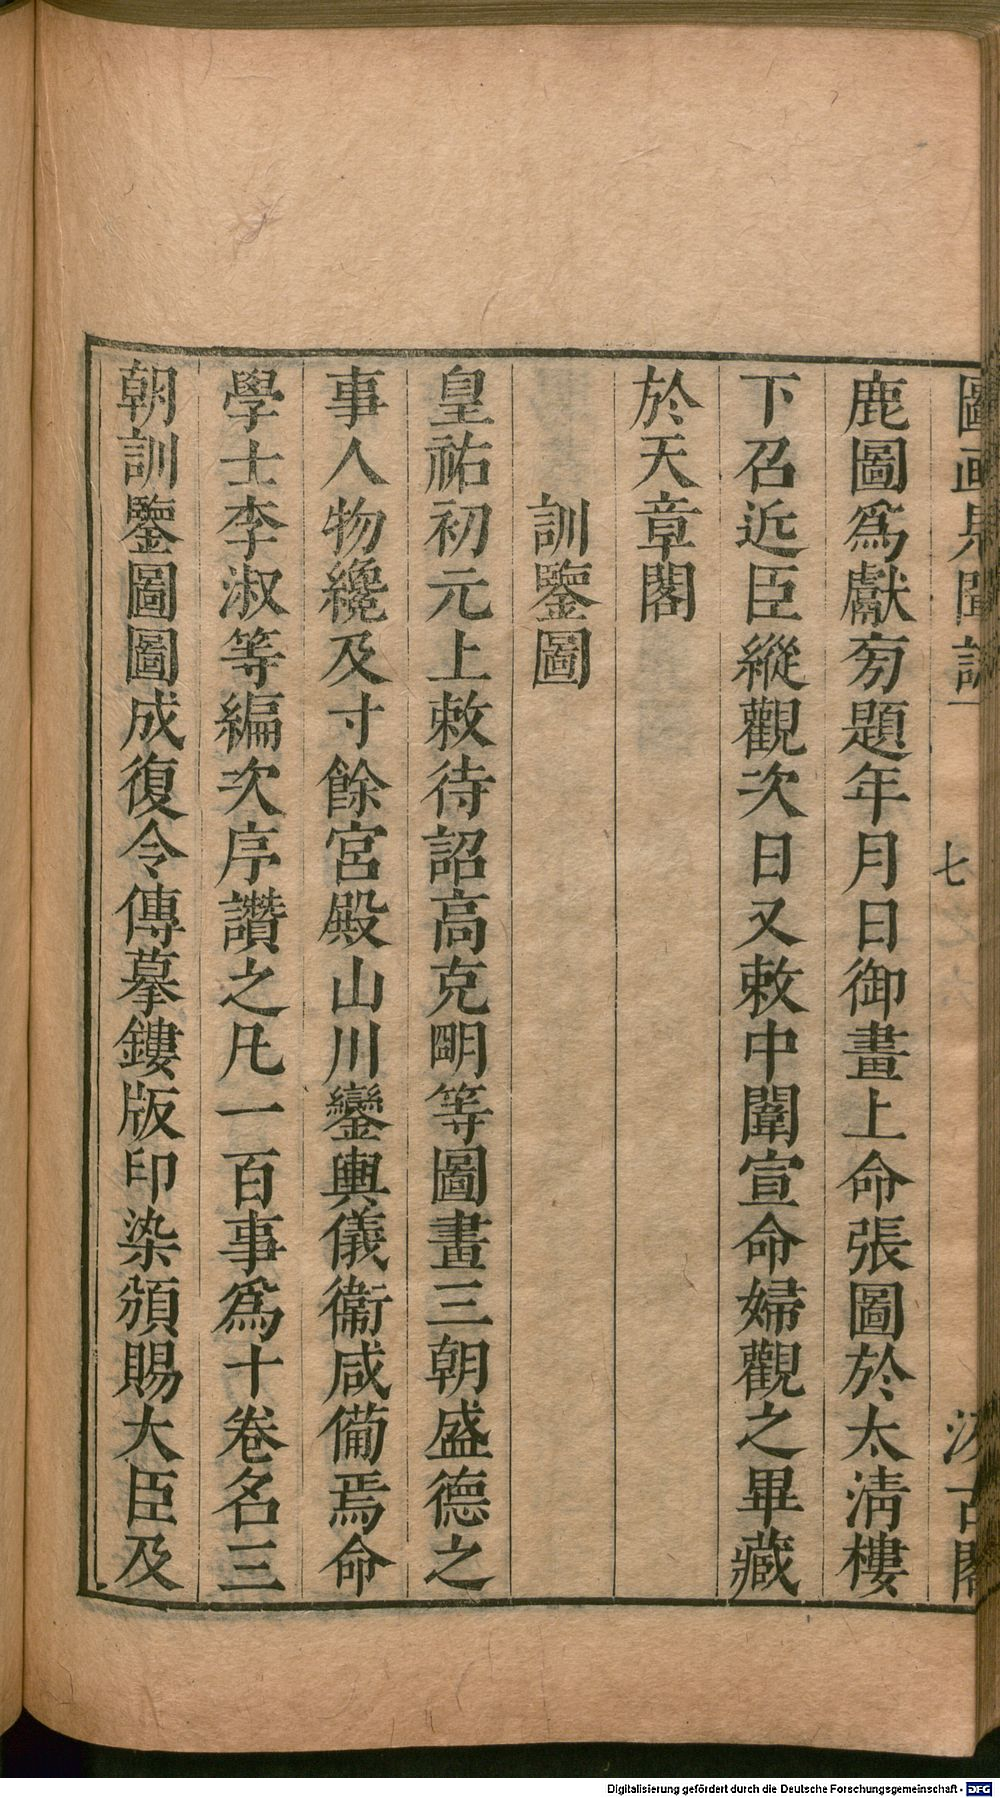 圖畫見聞誌
七
汲古閣
鹿圖爲獻旁題年月日御畫上命張圖於太淸樓
下召近臣縱觀次日又敕中闈宣命婦觀之畢藏
於天章閣
訓鑒圖
皇祐初元上敕待詔高克明等圖畫三朝盛德之
事人物纔及寸餘宮殿山川鑾輿儀衞咸備焉命
學士李淑等編次序讚之凡一百事爲十卷名三
朝訓鑒圖圖成復令傳摹鏤版印染頒賜大臣及
Digitalisierung gefördert durch die Deutsche Forschungsgemeinschaft - DFG